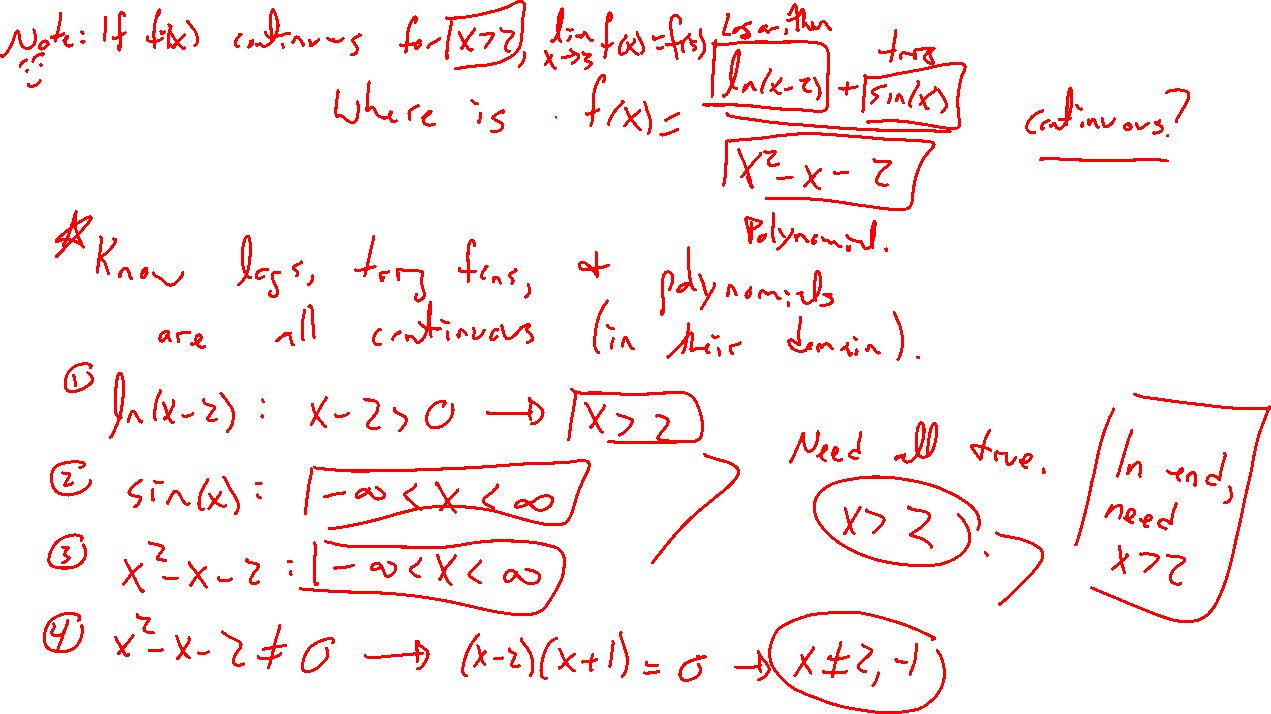 Note: If f(x) continuous for x>2, lim x→3 f(x)=f(3)
Logarithm
trig
Where is f(x)= (ln(x-2) + sin(x)) / (x²-x-2) continuous?
Polynomial.
Know logs, trig fcns, & polynomials
are all continuous (in their domain).
① ln(x-2): x-2>0 → x>2
② sin(x): -∞<x<∞
③ x²-x-2: -∞<x<∞
④ x²-x-2≠0 → (x-2)(x+1)=0 → x≠2,-1
Need all true.
x>2.
In end,
need
x>2